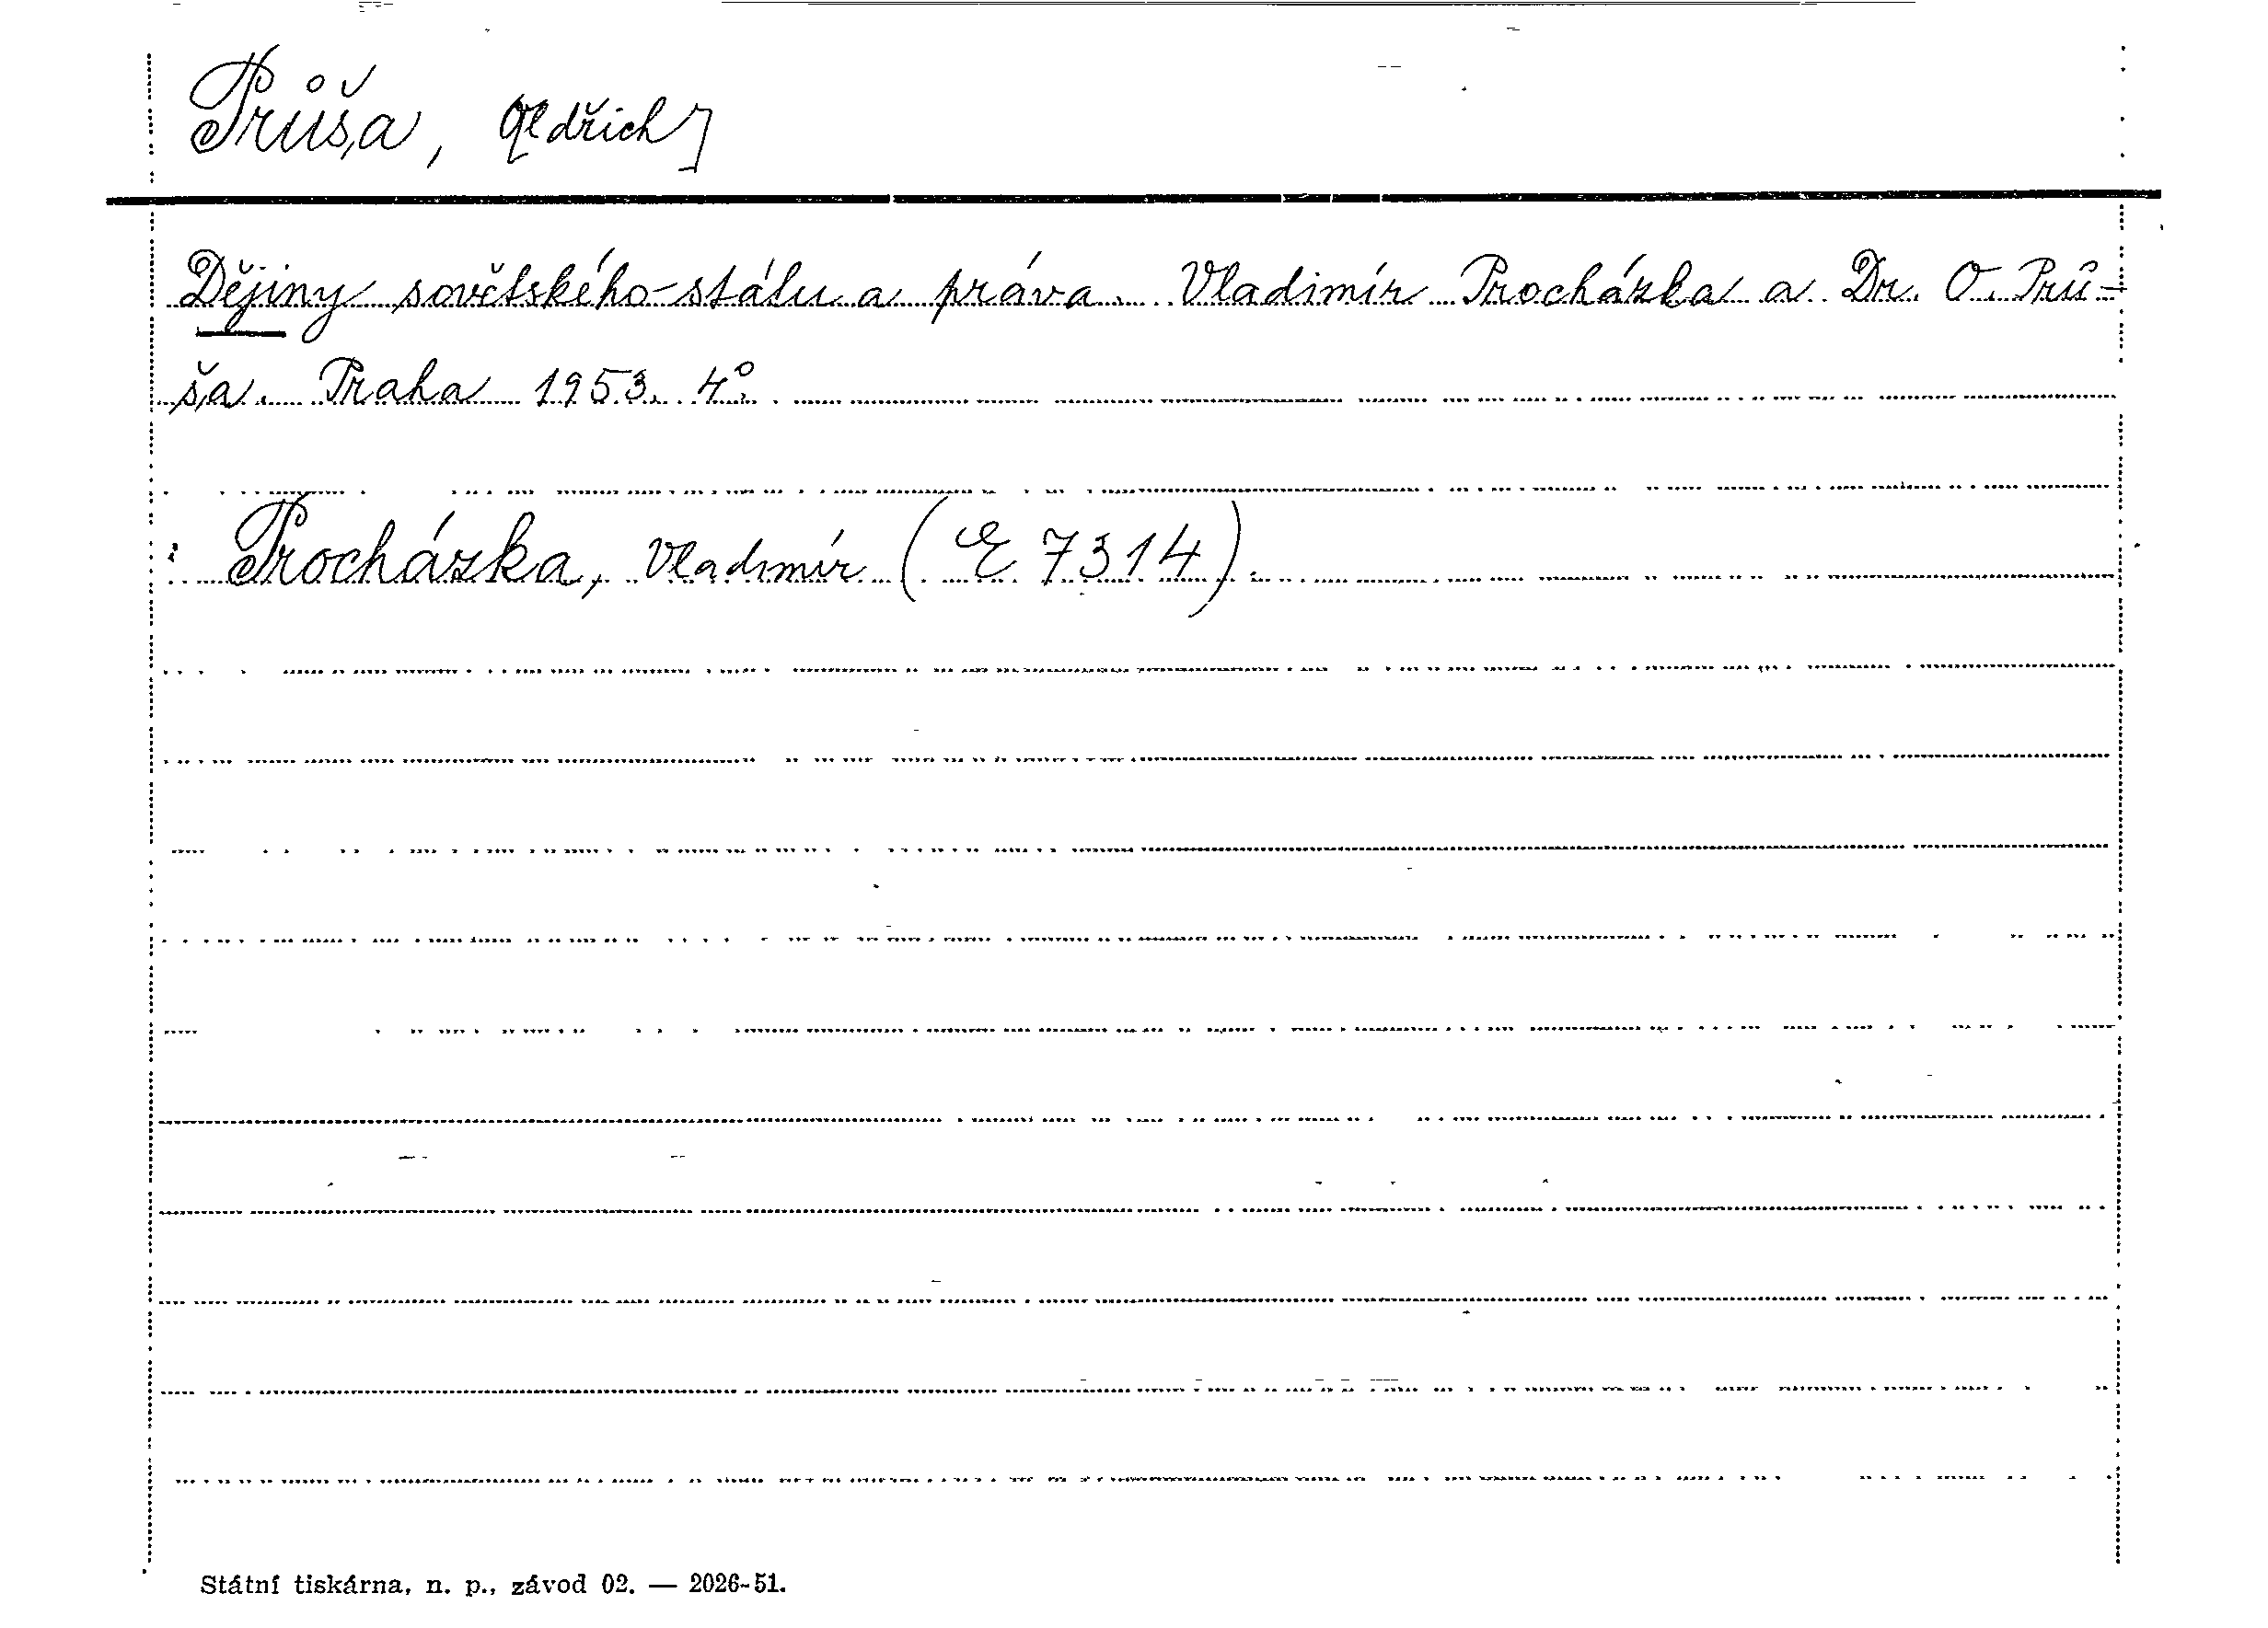 Průša, O[ldřich]
Dějiny sovětského státu a práva. Vladimír Procházka a Dr. O. Prů-
ša. Praha 1953. 4°.
: Procházka, Vladimír (E 7314).
Státní tiskárna, n. p., závod 02. — 2026-51.